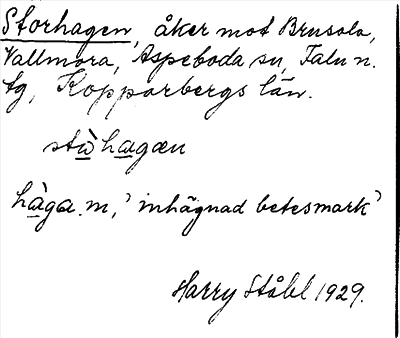 Storhagen, åker mot Brusala,
Vallmora, Aspeboda sn, Falu n.
tg, Kopparbergs län.
stὰhagæn
hàga m, 'inhägnad betesmark'
Harry Ståhl 1929.